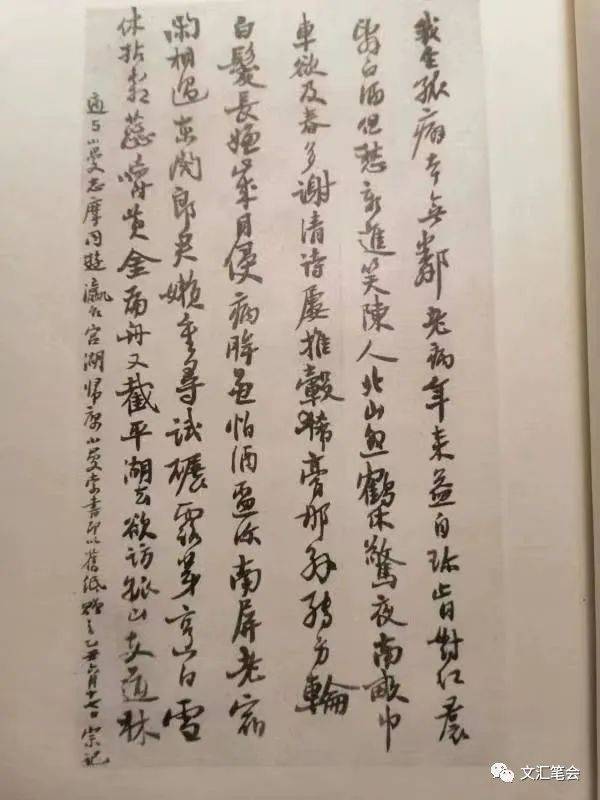 我生孤癖本無鄰老病年來益自珍肯對紅裙
辭白酒但愁新進笑陳人北山怨鶴休驚夜南畝巾
車欲及春多謝清詩屢推轂豨膏那解轉方輪
白髮長嫌歲月侵病眸兼怕酒盃深南屏老宿
閑相過東閣郎君嬾重尋試碾露芽烹白雪
休拈霜蕊嚼黃金扁舟又截平湖去欲訪孤山支道林
適与小曼志摩同遊瀛台宮湖歸寓小曼索書即以舊紙贈之乙丑六月十七日宗記
文汇笔会